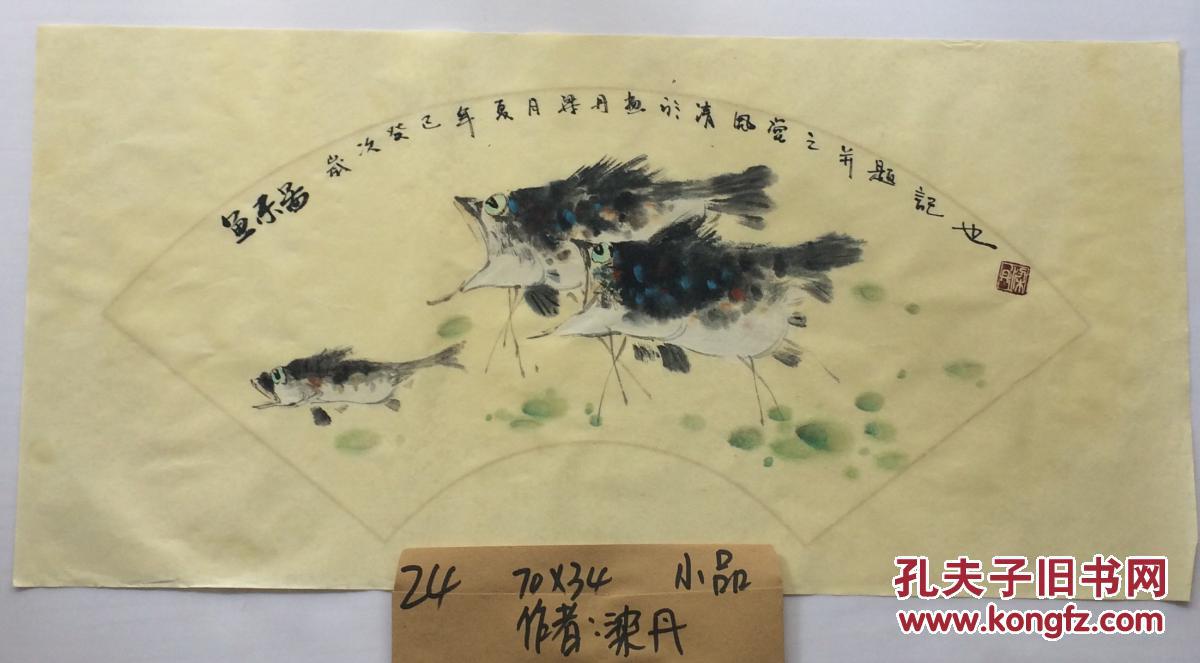 鱼乐图
岁次癸巳年夏月梁丹画於清风堂之并题記也
梁丹
24 70X34 小品
作者:梁丹
孔夫子旧书网
www.kongfz.com